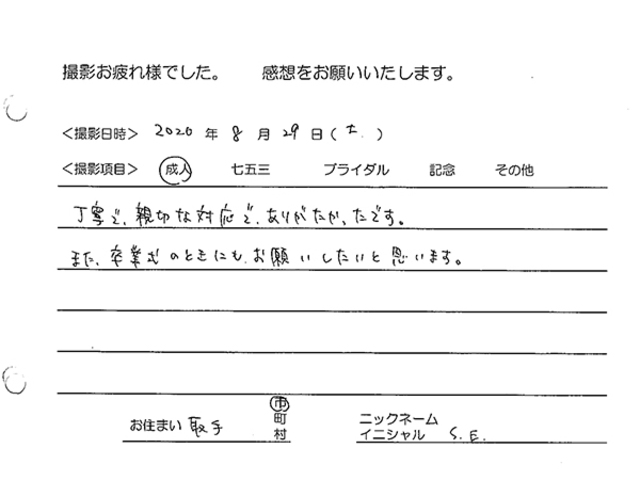 撮影お疲れ様でした。 感想をお願いいたします。
<撮影日時> 2020 年 8 月 29 日 (土.)
<撮影項目> 成人 七五三 ブライダル 記念 その他
丁寧で、親切な対応で、ありがたかったです。
また、卒業式のときにも、お願いしたいと思います。
お住まい 取手 市
町
村
ニックネーム
イニシャル S.E.